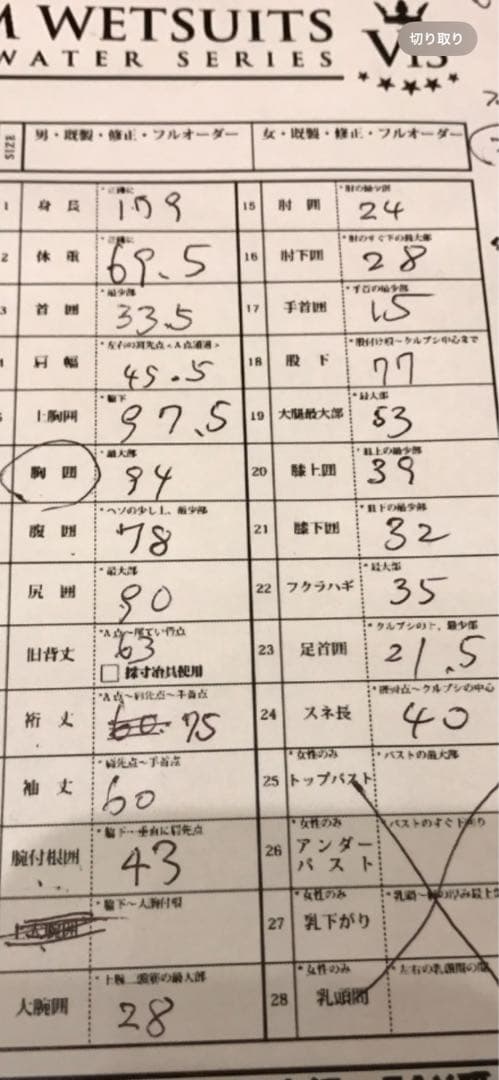 M WETSUITS
WATER SERIES
VIS
切り取り
SIZE 男・既製・修正・フルオーダー 女・既製・修正・フルオーダー
1 身長 *正確に 159
15 肘囲 *肘の最少部 24
2 体重 *正確に 69.5
16 肘下囲 *肘のすぐ下の最大部 28
3 首囲 *最少部 33.5
17 手首囲 *手首の最少部 15
肩幅 *左右の肩先点<A点通過> 45.5
18 股下 *股付け根〜クルブシ中心まで 77
上胸囲 *脇下 97.5
19 大腿最大部 *最大部 53
胸囲 *最大部 94
20 膝上囲 *皿上の最少部 39
腹囲 *ヘソの少し上、最少部 78
21 膝下囲 *皿下の最少部 32
尻囲 *最大部 90
22 フクラハギ *最大部 35
旧背丈 *A点〜尾てい骨点 63
採寸冶具使用
23 足首囲 *クルブシの上、最少部 21.5
裄丈 *A点〜肩先点〜手首点 60 75
24 スネ長 *膝頭点〜クルブシの中心 40
袖丈 *肩先点〜手首点 60
25 *女性のみ トップバスト *バストの最大部
腕付根囲 *脇下…垂直に肩先点 43
26 *女性のみ アンダーバスト *バストのすぐ下廻り
上大腕囲 *脇下〜大胸付根
27 *女性のみ 乳下がり
大腕囲 *上腕二頭筋の最大部 28
28 *女性のみ 乳頭間 *左右の乳頭間の間